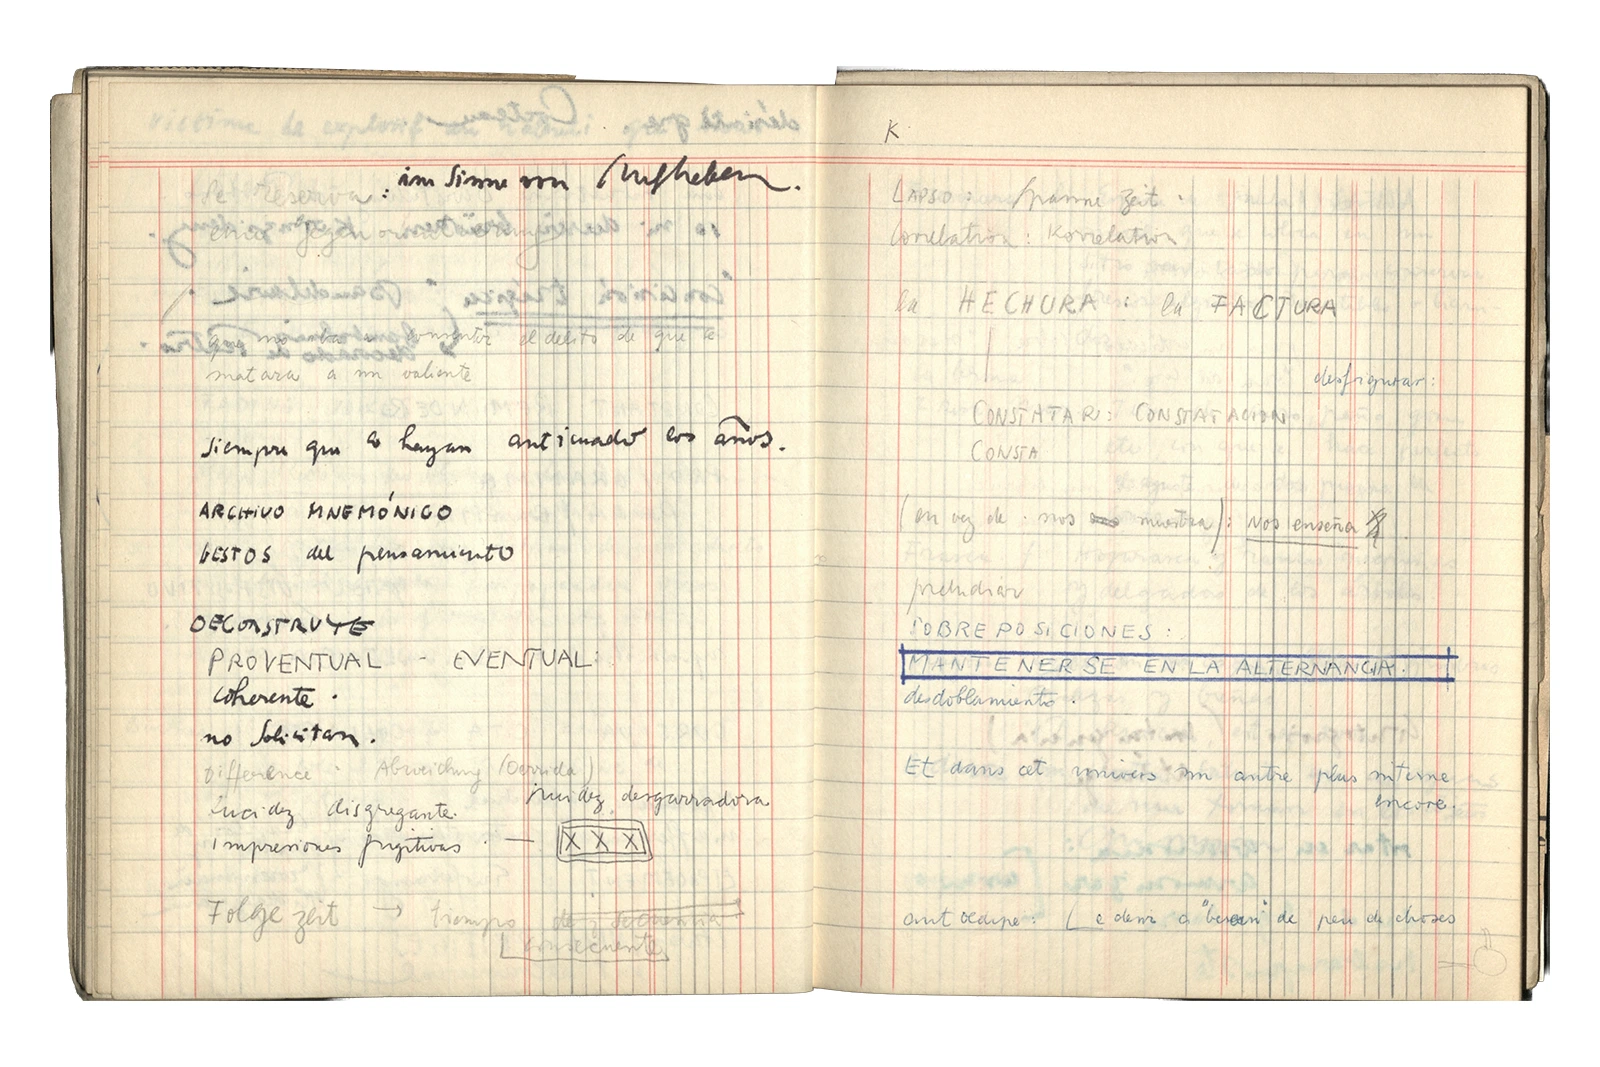 Se reserva : im Sinne von Aufheben.
cometer el delito de que lo
matara a un valiente
Siempre que lo hayan anticuado los años.
ARCHIVO MNEMÓNICO
GESTOS del pensamiento
DECONSTRUYE
PROVENTUAL - EVENTUAL:
Coherente.
no solicitan.
Difference: Abweichung (Derrida)
lucidez desgarradora
Lucidez disgregante.
Impresiones fugitivas. — X X X
Folge zeit → tiempo de secuencia
consecuente
K.
LAPSO: Spanne Zeit.
Correlation: Korrelation
la HECHURA: la FACTURA
desfigurar:
CONSTATAR: CONSTATACION
CONSTA
(en vez de nos muestra): Nos enseña
preludiar
SOBREPOSICIONES:
MANTENERSE EN LA ALTERNANCIA.
desdoblamiento.
Et dans cet univers un antre plus interne
encore.
ant oedipe: Le demi a "besoin" de peu de choses